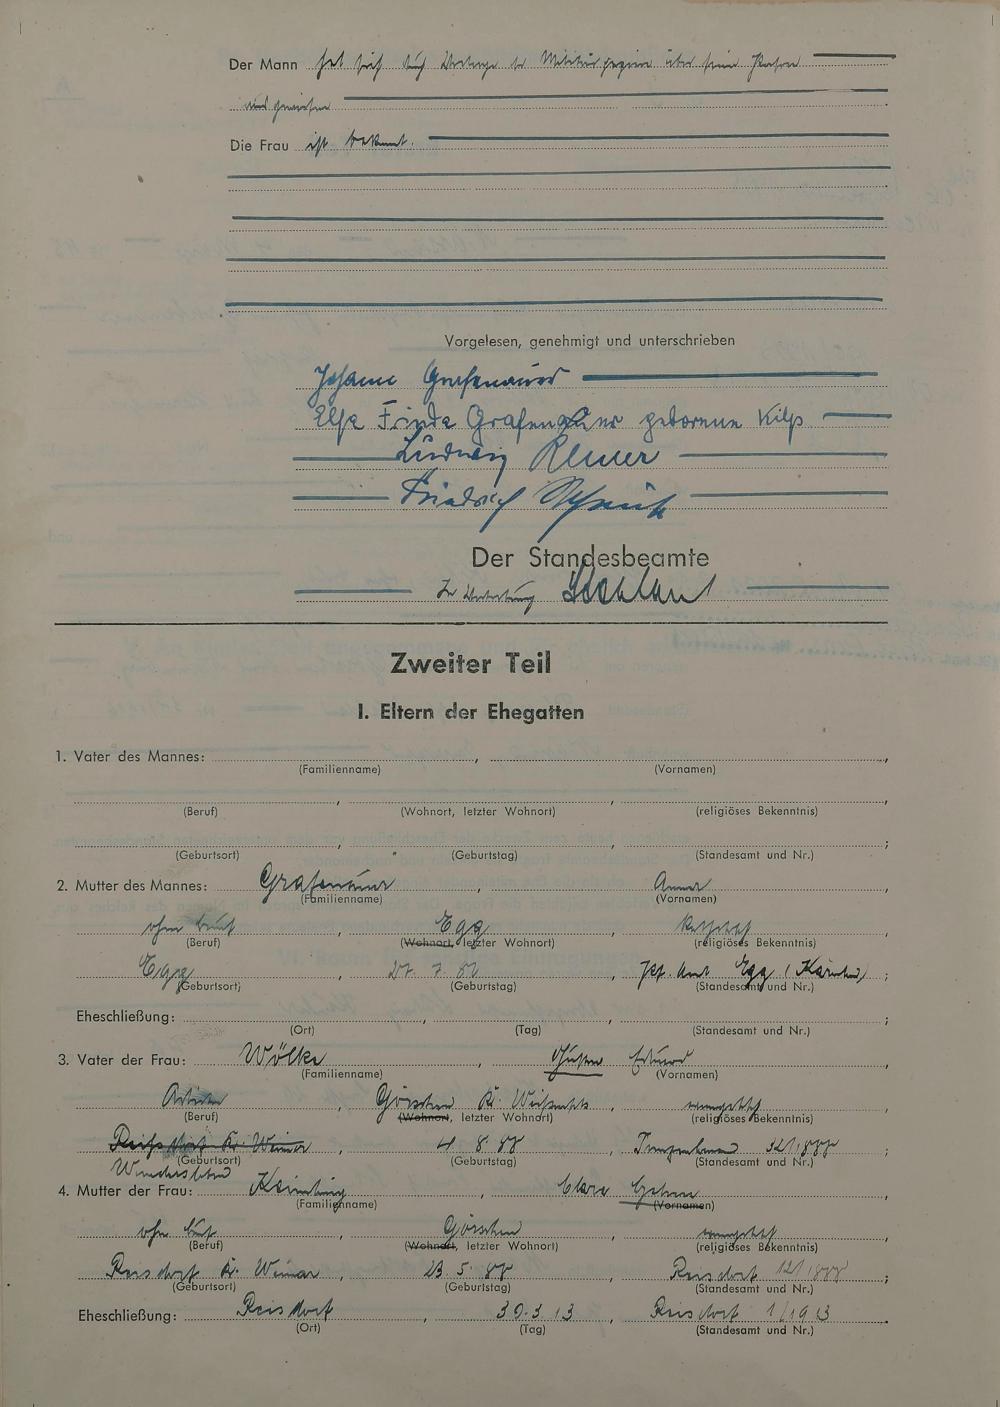 Der Mann hat sich durch Vorlage der Militärpapiere über seine Person
ausgewiesen
Die Frau ist bekannt.
Vorgelesen, genehmigt und unterschrieben
Johann Grafenauer
Else Frieda Grafenauer geborene
Ludwig
Friedrich
Der Standesbeamte
In Vertretung
Zweiter Teil
I. Eltern der Ehegatten
1. Vater des Mannes:
(Familienname) (Vornamen)
(Beruf) (Wohnort, letzter Wohnort) (religiöses Bekenntnis)
(Geburtsort) (Geburtstag) (Standesamt und Nr.)
2. Mutter des Mannes: Grafenauer, Anna
(Familienname) (Vornamen)
ohne Beruf, Egg, katholisch
(Beruf) (Wohnort, letzter Wohnort) (religiöses Bekenntnis)
Egg, 27. 7. 82, Amt Egg (Kärnten);
(Geburtsort) (Geburtstag) (Standesamt und Nr.)
Eheschließung:
(Ort) (Tag) (Standesamt und Nr.)
3. Vater der Frau: Wölke, Gustav Eduard
(Familienname) (Vornamen)
Arbeiter, Görschen Kr. Weißenfels, evangelisch
(Beruf) (Wohnort, letzter Wohnort) (religiöses Bekenntnis)
Reisdorf Kr. Weimar, 4. 8. 88, 32/1888
(Geburtsort) (Geburtstag) (Standesamt und Nr.)
4. Mutter der Frau: Clara
(Familienname) (Vornamen)
ohne Beruf, Görschen, evangelisch
(Beruf) (Wohnort, letzter Wohnort) (religiöses Bekenntnis)
Reisdorf Kr. Weimar, 23. 5. 88, Reisdorf 12/1888;
(Geburtsort) (Geburtstag) (Standesamt und Nr.)
Eheschließung: Reisdorf, 30. 3. 13, Reisdorf 1/1913
(Ort) (Tag) (Standesamt und Nr.)